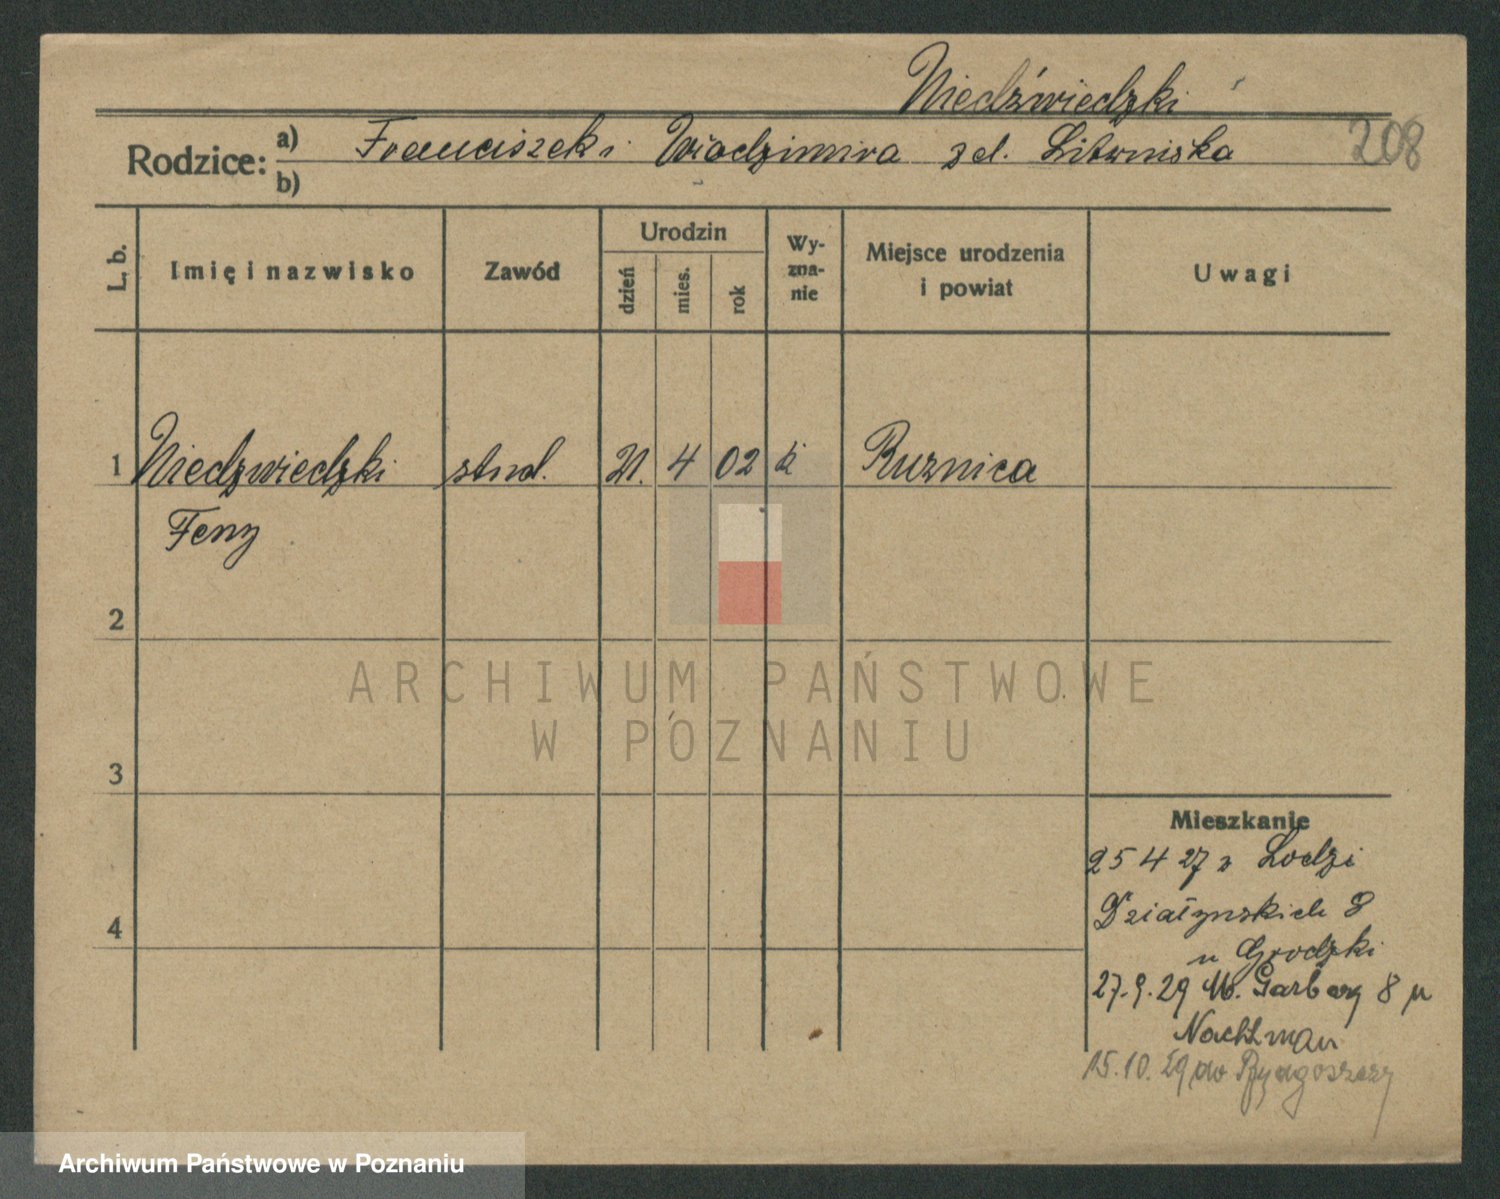 Niedźwiedzki
208
Rodzice: a) Franciszek i Wiodzimira zd. Litwniska
b)
L. b. Imię i nazwisko Zawód Urodzin dzień mies. rok Wy-zna-nie Miejsce urodzenia i powiat Uwagi
1 Niedzwiedzki stud. 21. 4 02 k Ruznica
Feny
2
3
4
Mieszkanie
25 4 27 z Lodzi
Działynskich 8
u Grodzki
27.9.29 W. Garbary 8 u
Nachtman
15.10.29 do Bydgoszczy
ARCHIWUM PAŃSTWOWE
W POZNANIU
Archiwum Państwowe w Poznaniu